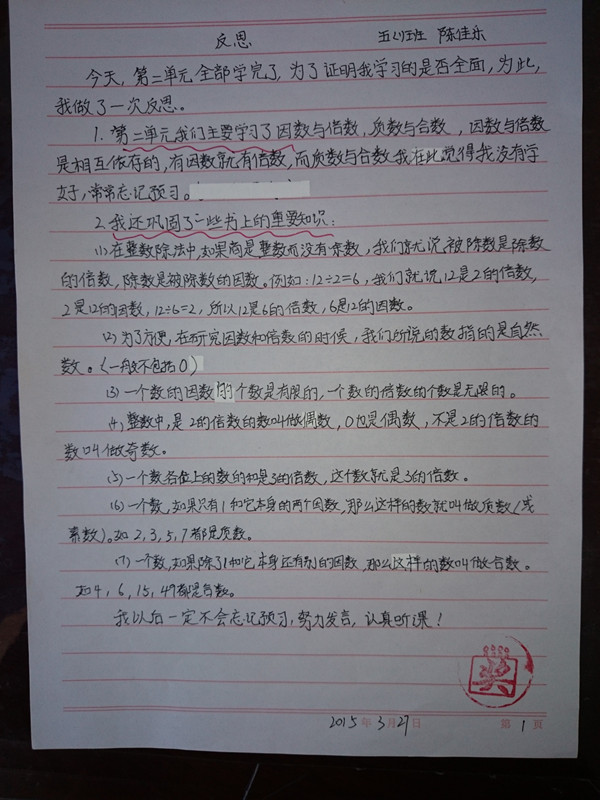 反思 五(1)班 陈佳乐
今天,第二单元全部学完了,为了证明我学习的是否全面,为此,
我做了一次反思。
1.第二单元我们主要学习了因数与倍数,质数与合数,因数与倍数
是相互依存的,有因数就有倍数,而质数与合数我在此觉得我没有学
好,常常忘记预习。
2.我还巩固了一些书上的重要知识:
(1)在整数除法中,如果商是整数而没有余数,我们就说被除数是除数
的倍数,除数是被除数的因数。例如:12÷2=6,我们就说12是2的倍数,
2是12的因数,12÷6=2,所以12是6的倍数,6是12的因数。
(2)为了方便,在研究因数和倍数的时候,我们所说的数指的是自然
数。(一般不包括0)
(3)一个数的因数的个数是有限的,一个数的倍数的个数是无限的。
(4)整数中,是2的倍数的数叫做偶数,0也是偶数,不是2的倍数的
数叫做奇数。
(5)一个数各位上的数的和是3的倍数,这个数就是3的倍数。
(6)一个数,如果只有1和它本身的两个因数,那么这样的数就叫做质数(或
素数)。如2,3,5,7都是质数。
(7)一个数,如果除了1和它本身还有别的因数,那么这样的数叫做合数。
如4,6,15,49都是合数。
我以后一定不会忘记预习,努力发言,认真听课!
奖
2015年3月27日 第1页